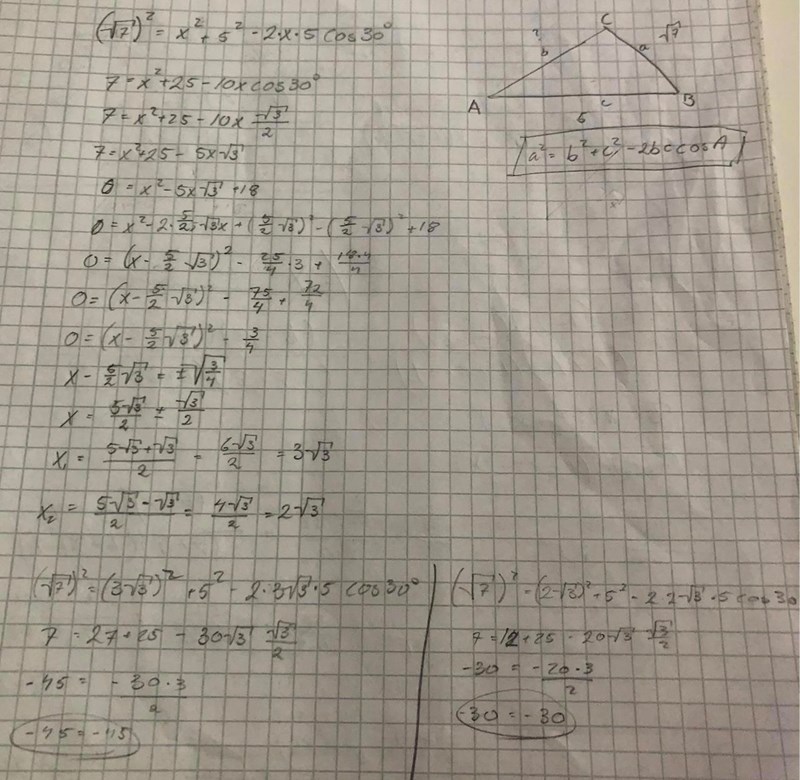 (√7)² = x² + 5² - 2·x·5 cos30°
7 = x² + 25 - 10x cos30°
7 = x² + 25 - 10x √3/2
7 = x² + 25 - 5x√3
0 = x² - 5x√3 + 18
0 = x² - 2·5/2·√3x + (5/2 √3)² - (5/2 √3)² + 18
0 = (x - 5/2 √3)² - 25/4·3 + 18·4/4
0 = (x - 5/2 √3)² - 75/4 + 72/4
0 = (x - 5/2 √3)² - 3/4
x - 5/2 √3 = ±√(3/4)
x = 5√3/2 ± √3/2
x₁ = (5√3 + √3)/2 = 6√3/2 = 3√3
x₂ = (5√3 - √3)/2 = 4√3/2 = 2√3
C
?
b
a
√7
A
c
B
5
a² = b² + c² - 2bc cosA
(√7)² = (3√3)² + 5² - 2·3√3·5 cos30°
7 = 27 + 25 - 30√3 √3/2
-45 = - 30·3/2
-45 = -45
(√7)² = (2√3)² + 5² - 2·2√3·5 cos30
7 = 12 + 25 - 20√3 √3/2
-30 = -20·3/2
-30 = -30